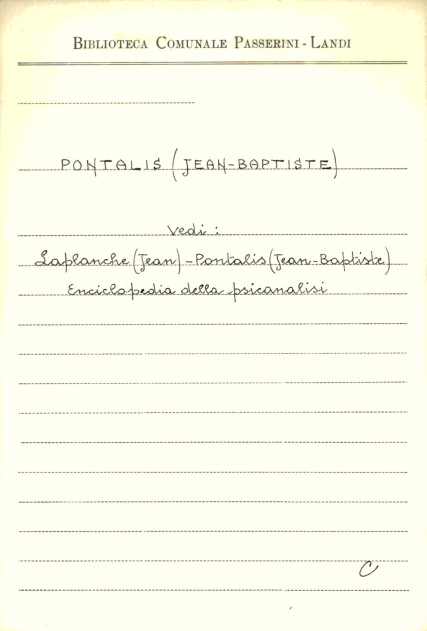 BIBLIOTECA COMUNALE PASSERINI - LANDI
PONTALIS (JEAN-BAPTISTE)
Vedi :
Laplanche (Jean) - Pontalis (Jean-Baptiste)
Enciclopedia della psicanalisi
C